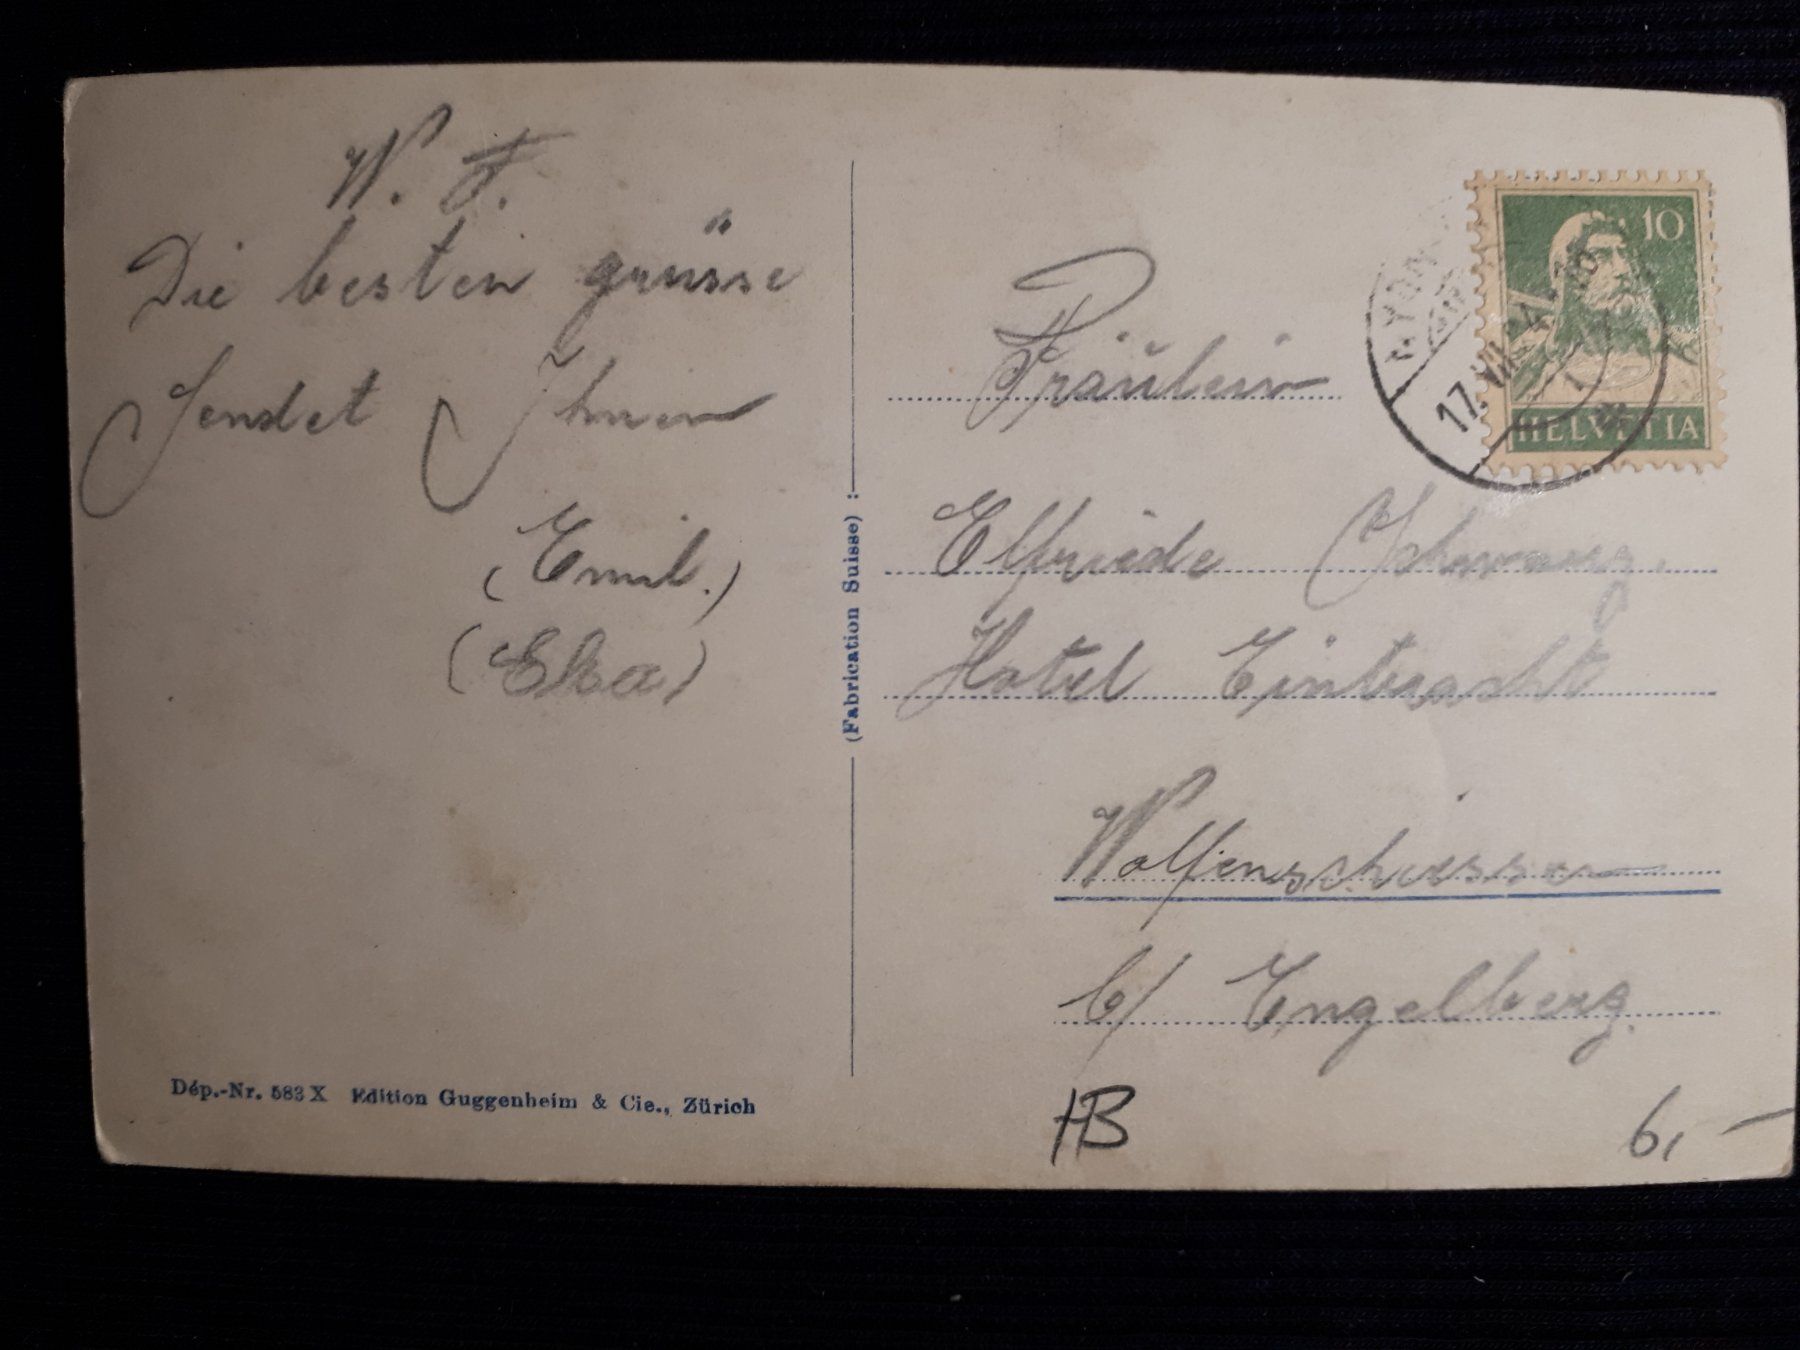 W. F.
Die besten grüsse
Sendet Ihnen
(Emil.)
(Elsa)
Dép.-Nr. 583 X Edition Guggenheim & Cie., Zürich
(Fabrication Suisse)
10
HELVETIA
17. VII. 24.
Fräulein
Elfriede Schwarz.
Hotel Eintracht
Wolfenschiessen
b/ Engelberg.
HB
6,-